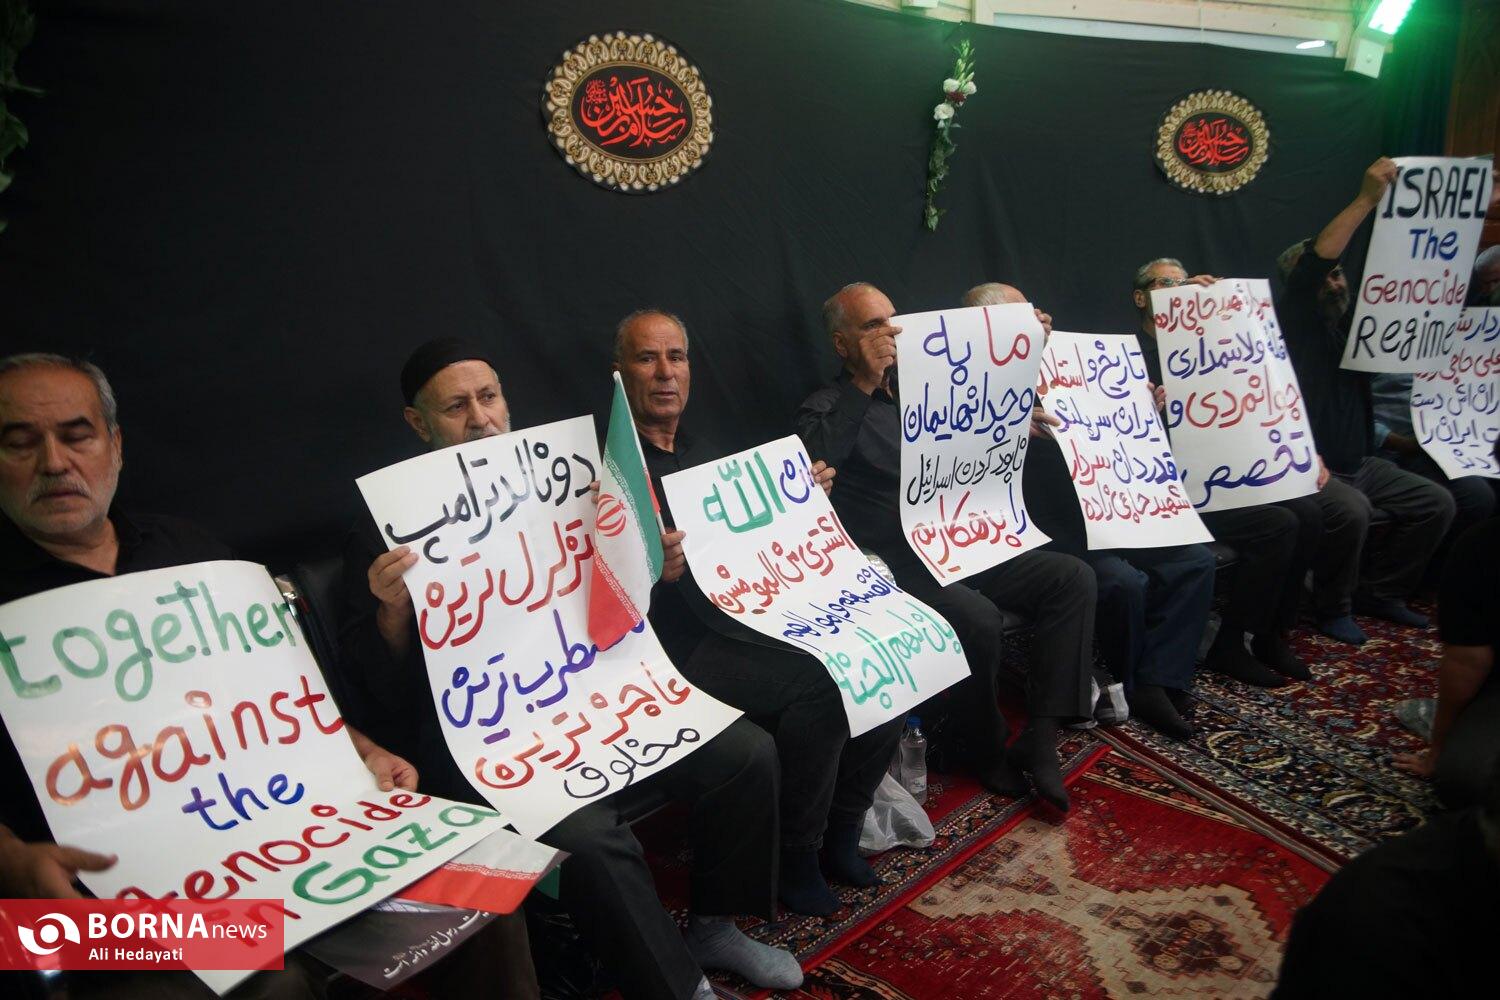 together
against
the
genocide
in Gaza
دونالد ترامپ
تزلزل ترین
مضطرب ترین
عاجز ترین
مخلوق
ان الله
اشتری من المومنین
انفسهم و اموالهم
بان لهم الجنة
ما به
وجدانهایمان
نابود کردن اسرائیل
را بدهکاریم
تاریخ و استقلال
ایران سربلند
قدردان سردار
شهید حاجی زاده
سردار شهید حاجی زاده
ولایتمداری
جوانمردی و
تخصص
ISRAEL
The
Genocide
Regime
علی حاجی زاده
ایران را
سلام بر حسین
سلام بر حسین
BORNA news
Ali Hedayati